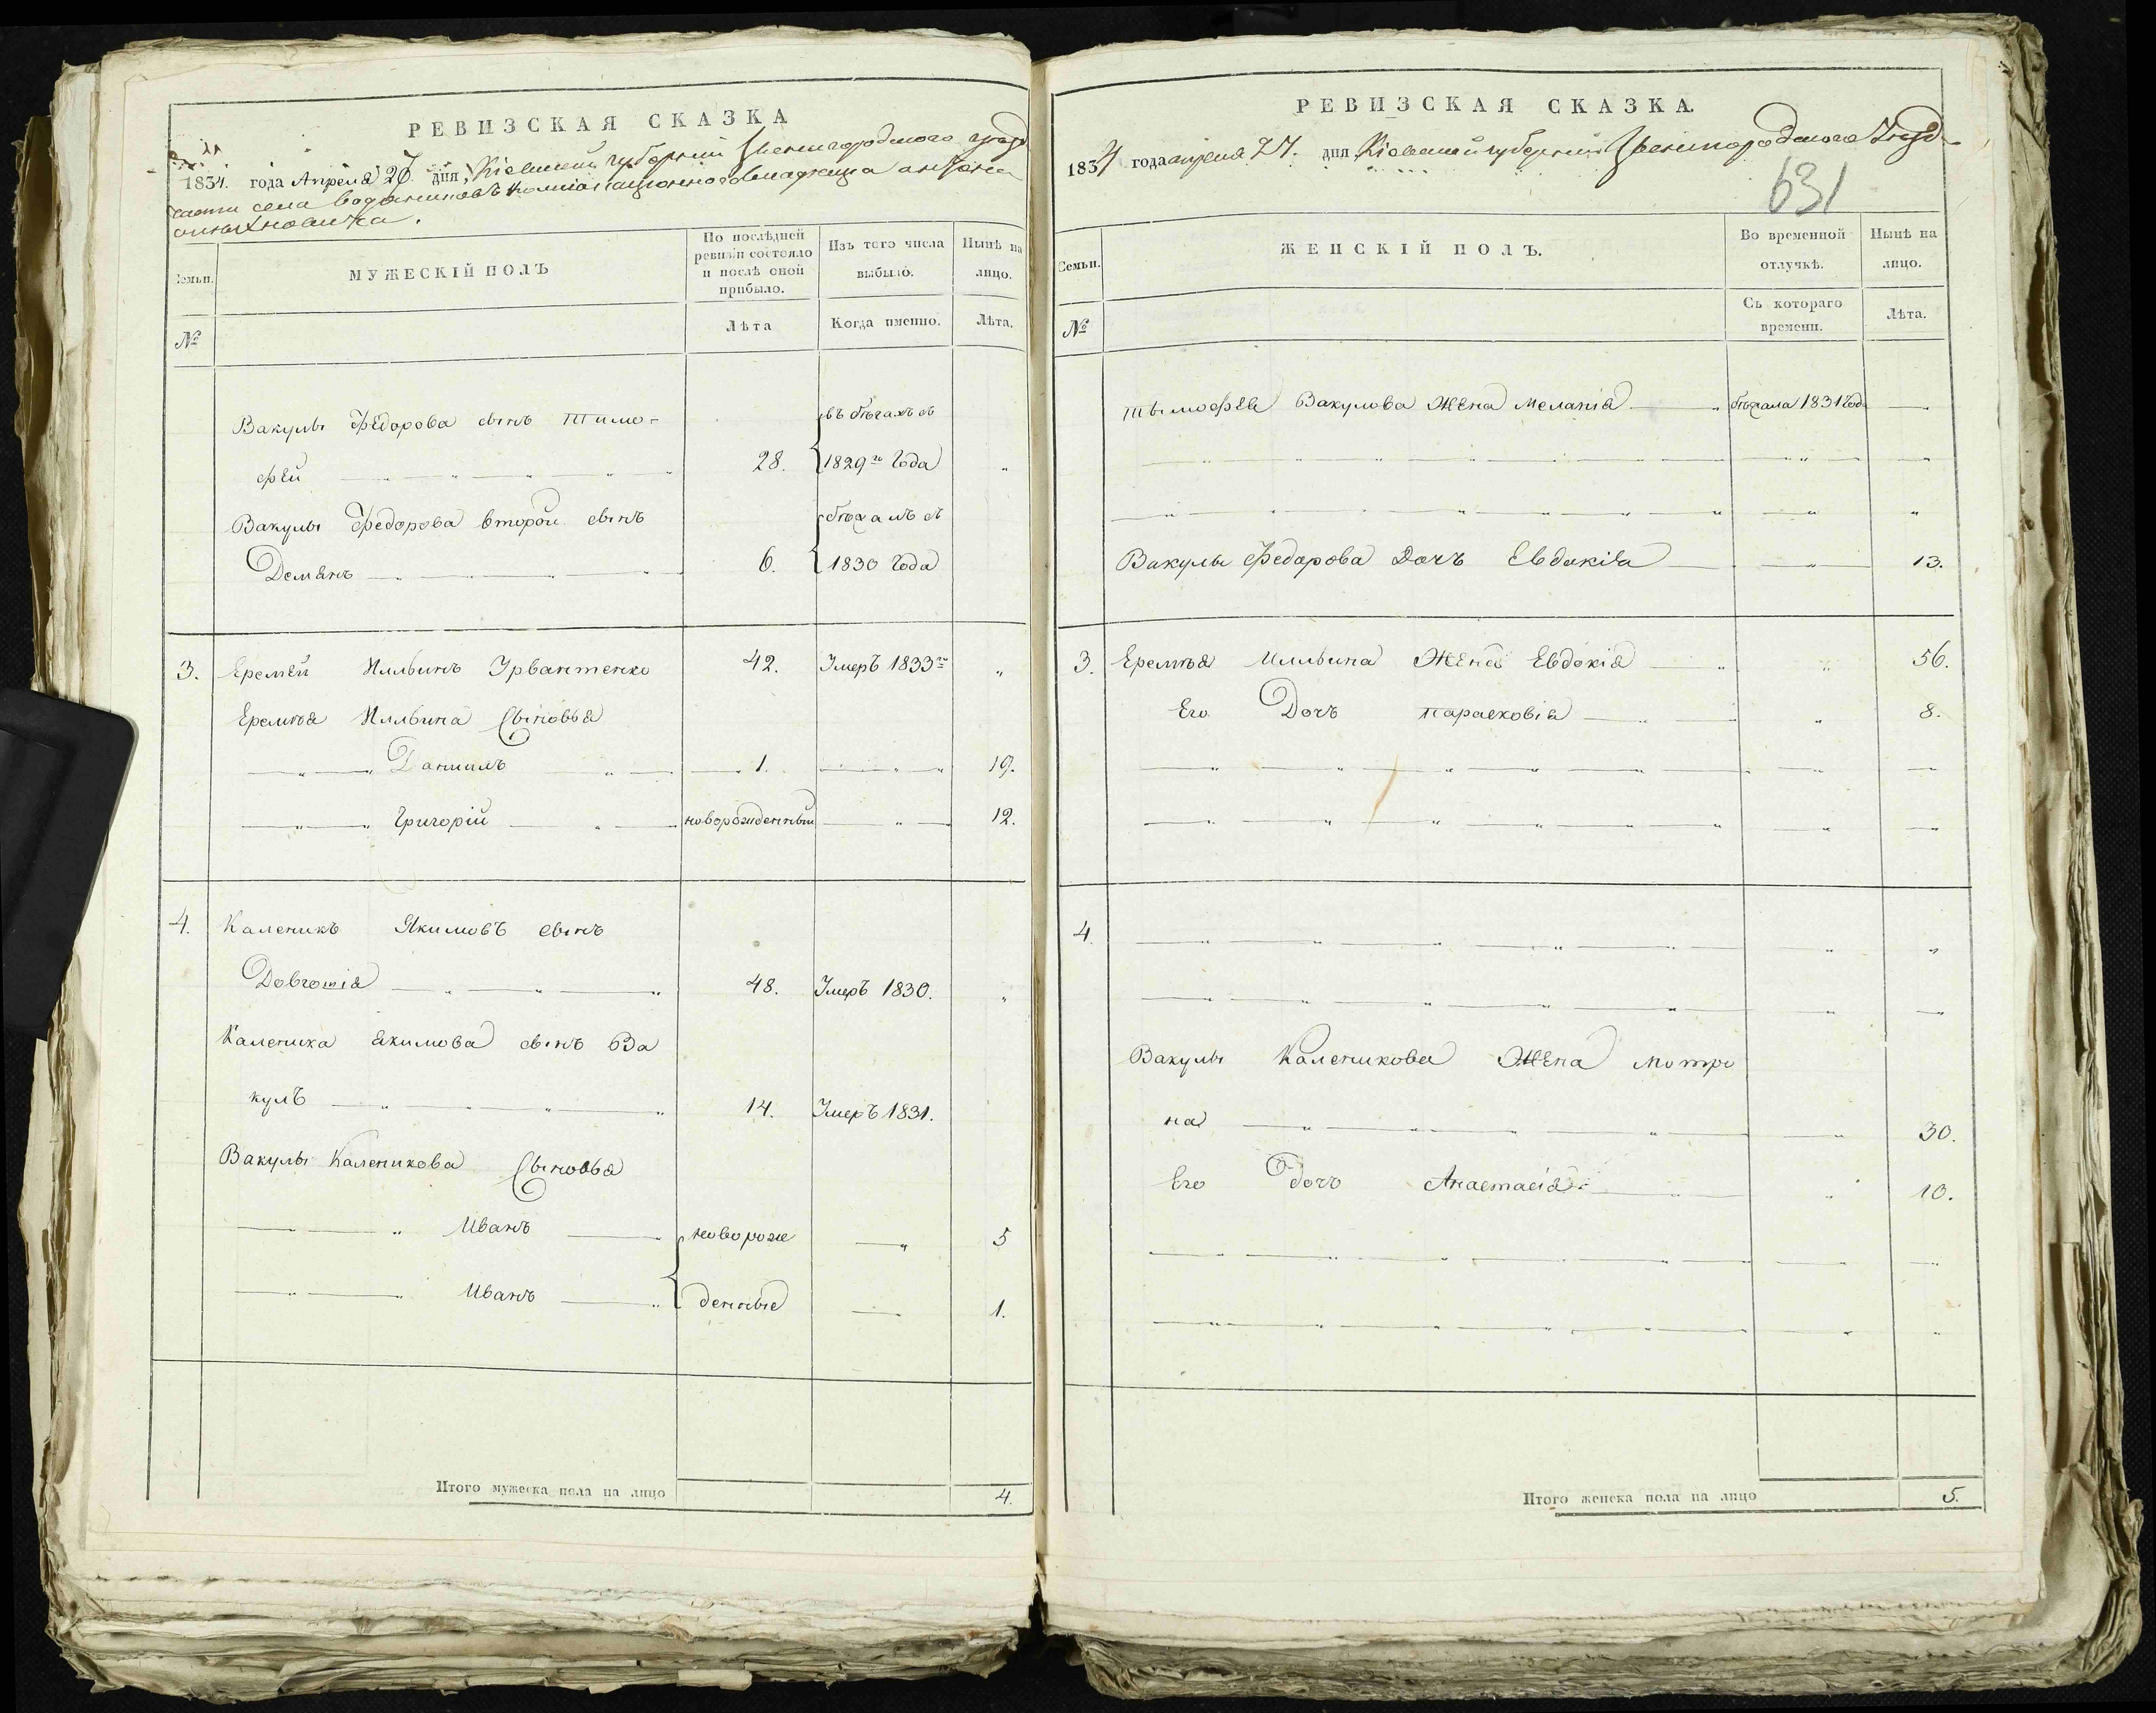 РЕВИЗСКАЯ СКАЗКА
1834. года Апреля 27 дня, Кіевской губерніи Звенигородского уезда
части села Водяниковъ
МУЖЕСКІЙ ПОЛЪ
Семьи.
№
По послѣдней ревизіи состояло и послѣ оной прибыло.
Лѣта
Изъ того числа выбыло.
Когда именно.
Нынѣ на лицо.
Лѣта.
Вакулы Федорова сынъ Тимо- въ бѣгахъ съ
фей 28. 1829го Года
Вакулы Федорова второй сынъ бѣжалъ съ
Демянъ 6. 1830 Года
3. Еремѣй Ильинъ 42. Умеръ 1833го
Еремѣя Ильина Сыновья
Данилъ 1. 19.
Григорій новорожденный 12.
4. Каленикъ Якимовъ сынъ
Довгошія 48. Умеръ 1830.
Каленика Екимова сынъ Ва
кулъ 14. Умеръ 1831.
Вакулы Каленикова Сыновья
Иванъ новорож 5
Иванъ денные 1.
Итого мужеска пола на лицо 4.
РЕВИЗСКАЯ СКАЗКА.
1834 года апреля 27. дня Кіевской губерніи Звенигородского Уезда
631
Семьи.
№
ЖЕНСКІЙ ПОЛЪ.
Во временной отлучкѣ.
Съ котораго времени.
Нынѣ на лицо.
Лѣта.
Тимофея Вакулова Жена Меланія бѣжала 1831 Года
Вакулы Федорова Дочъ Евдокія 13.
3. Еремѣя Ильина Жена Евдокія 56.
Его Дочъ Парасковія 8.
4.
Вакулы Каленикова Жена Мотро
на 30.
Его дочъ Анастасія 10.
Итого женска пола на лицо 5.